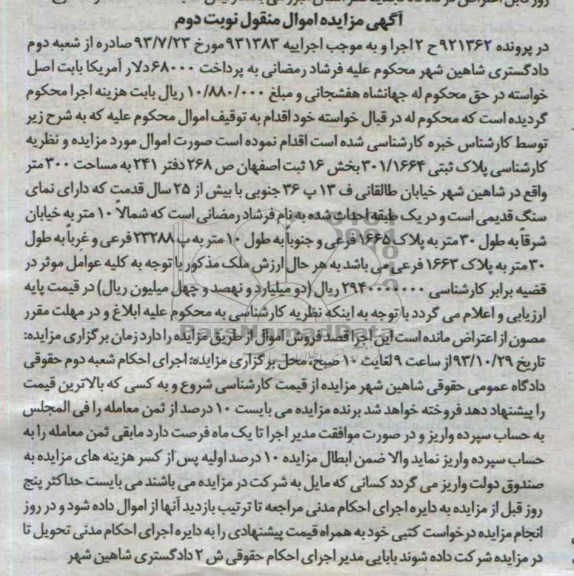 آگهی مزایده اموال منقول نوبت دوم
در پرونده ۹۲۱۳۶۲ ح ۲ اجرا و به موجب اجراییه ۹۳۱۳۸۳ مورخ ۹۳/۷/۲۳ صادره از شعبه دوم
دادگستری شاهین شهر محکوم علیه فرشاد رمضانی به پرداخت ۶۸۰۰۰ دلار آمریکا بابت اصل
خواسته در حق محکوم له جهانشاه هفشجانی و مبلغ ۱۰/۸۸۰/۰۰۰ ریال بابت هزینه اجرا محکوم
گردیده است که محکوم له در قبال خواسته خود اقدام به توقیف اموال محکوم علیه که به شرح زیر
توسط کارشناس خبره کارشناسی شده است اقدام نموده است صورت اموال مورد مزایده و نظریه
کارشناسی پلاک ثبتی ۳۰۱/۱۶۶۴ بخش ۱۶ ثبت اصفهان ص ۲۶۸ دفتر ۲۴۱ به مساحت ۳۰۰ متر
واقع در شاهین شهر خیابان طالقانی ف ۱۳ پ ۳۶ جنوبی با بیش از ۲۵ سال قدمت که دارای نمای
سنگ قدیمی است و در یک طبقه احداث شده به نام فرشاد رمضانی است که شمالاً ۱۰ متر به خیابان
شرقاً به طول ۳۰ متر به پلاک ۱۶۶۵ فرعی و جنوباً به طول ۱۰ متر به پ ۲۳۲۸۸ فرعی و غرباً به طول
۳۰ متر به پلاک ۱۶۶۳ فرعی می باشد به هر حال ارزش ملک مذکور با توجه به کلیه عوامل موثر در
قضیه برابر کارشناسی ۲۹۴۰۰۰۰۰۰۰ ریال (دو میلیارد و نهصد و چهل میلیون ریال) در قیمت پایه
ارزیابی و اعلام می گردد با توجه به اینکه نظریه کارشناسی به محکوم علیه ابلاغ و در مهلت مقرر
مصون از اعتراض مانده است این اجرا قصد فروش اموال از طریق مزایده را دارد زمان برگزاری مزایده:
تاریخ ۹۳/۱۰/۲۹ از ساعت ۹ لغایت ۱۰ صبح، محل برگزاری مزایده: اجرای احکام شعبه دوم حقوقی
دادگاه عمومی حقوقی شاهین شهر مزایده از قیمت کارشناسی شروع و به کسی که بالاترین قیمت
را پیشنهاد دهد فروخته خواهد شد برنده مزایده می بایست ۱۰ درصد از ثمن معامله را فی المجلس
به حساب سپرده واریز و در صورت موافقت مدیر اجرا تا یک ماه فرصت دارد مابقی ثمن معامله را به
حساب سپرده واریز نماید والا ضمن ابطال مزایده ۱۰ درصد اولیه پس از کسر هزینه های مزایده به
صندوق دولت واریز می گردد کسانی که مایل به شرکت در مزایده می باشند می بایست حداکثر پنج
روز قبل از مزایده به دایره اجرای احکام مدنی مراجعه تا ترتیب بازدید آنها از اموال داده شود و در روز
انجام مزایده درخواست کتبی خود به همراه قیمت پیشنهادی را به دایره اجرای احکام مدنی تحویل تا
در مزایده شرکت داده شوند بابایی مدیر اجرای احکام حقوقی ش ۲ دادگستری شاهین شهر
ParsNamadData